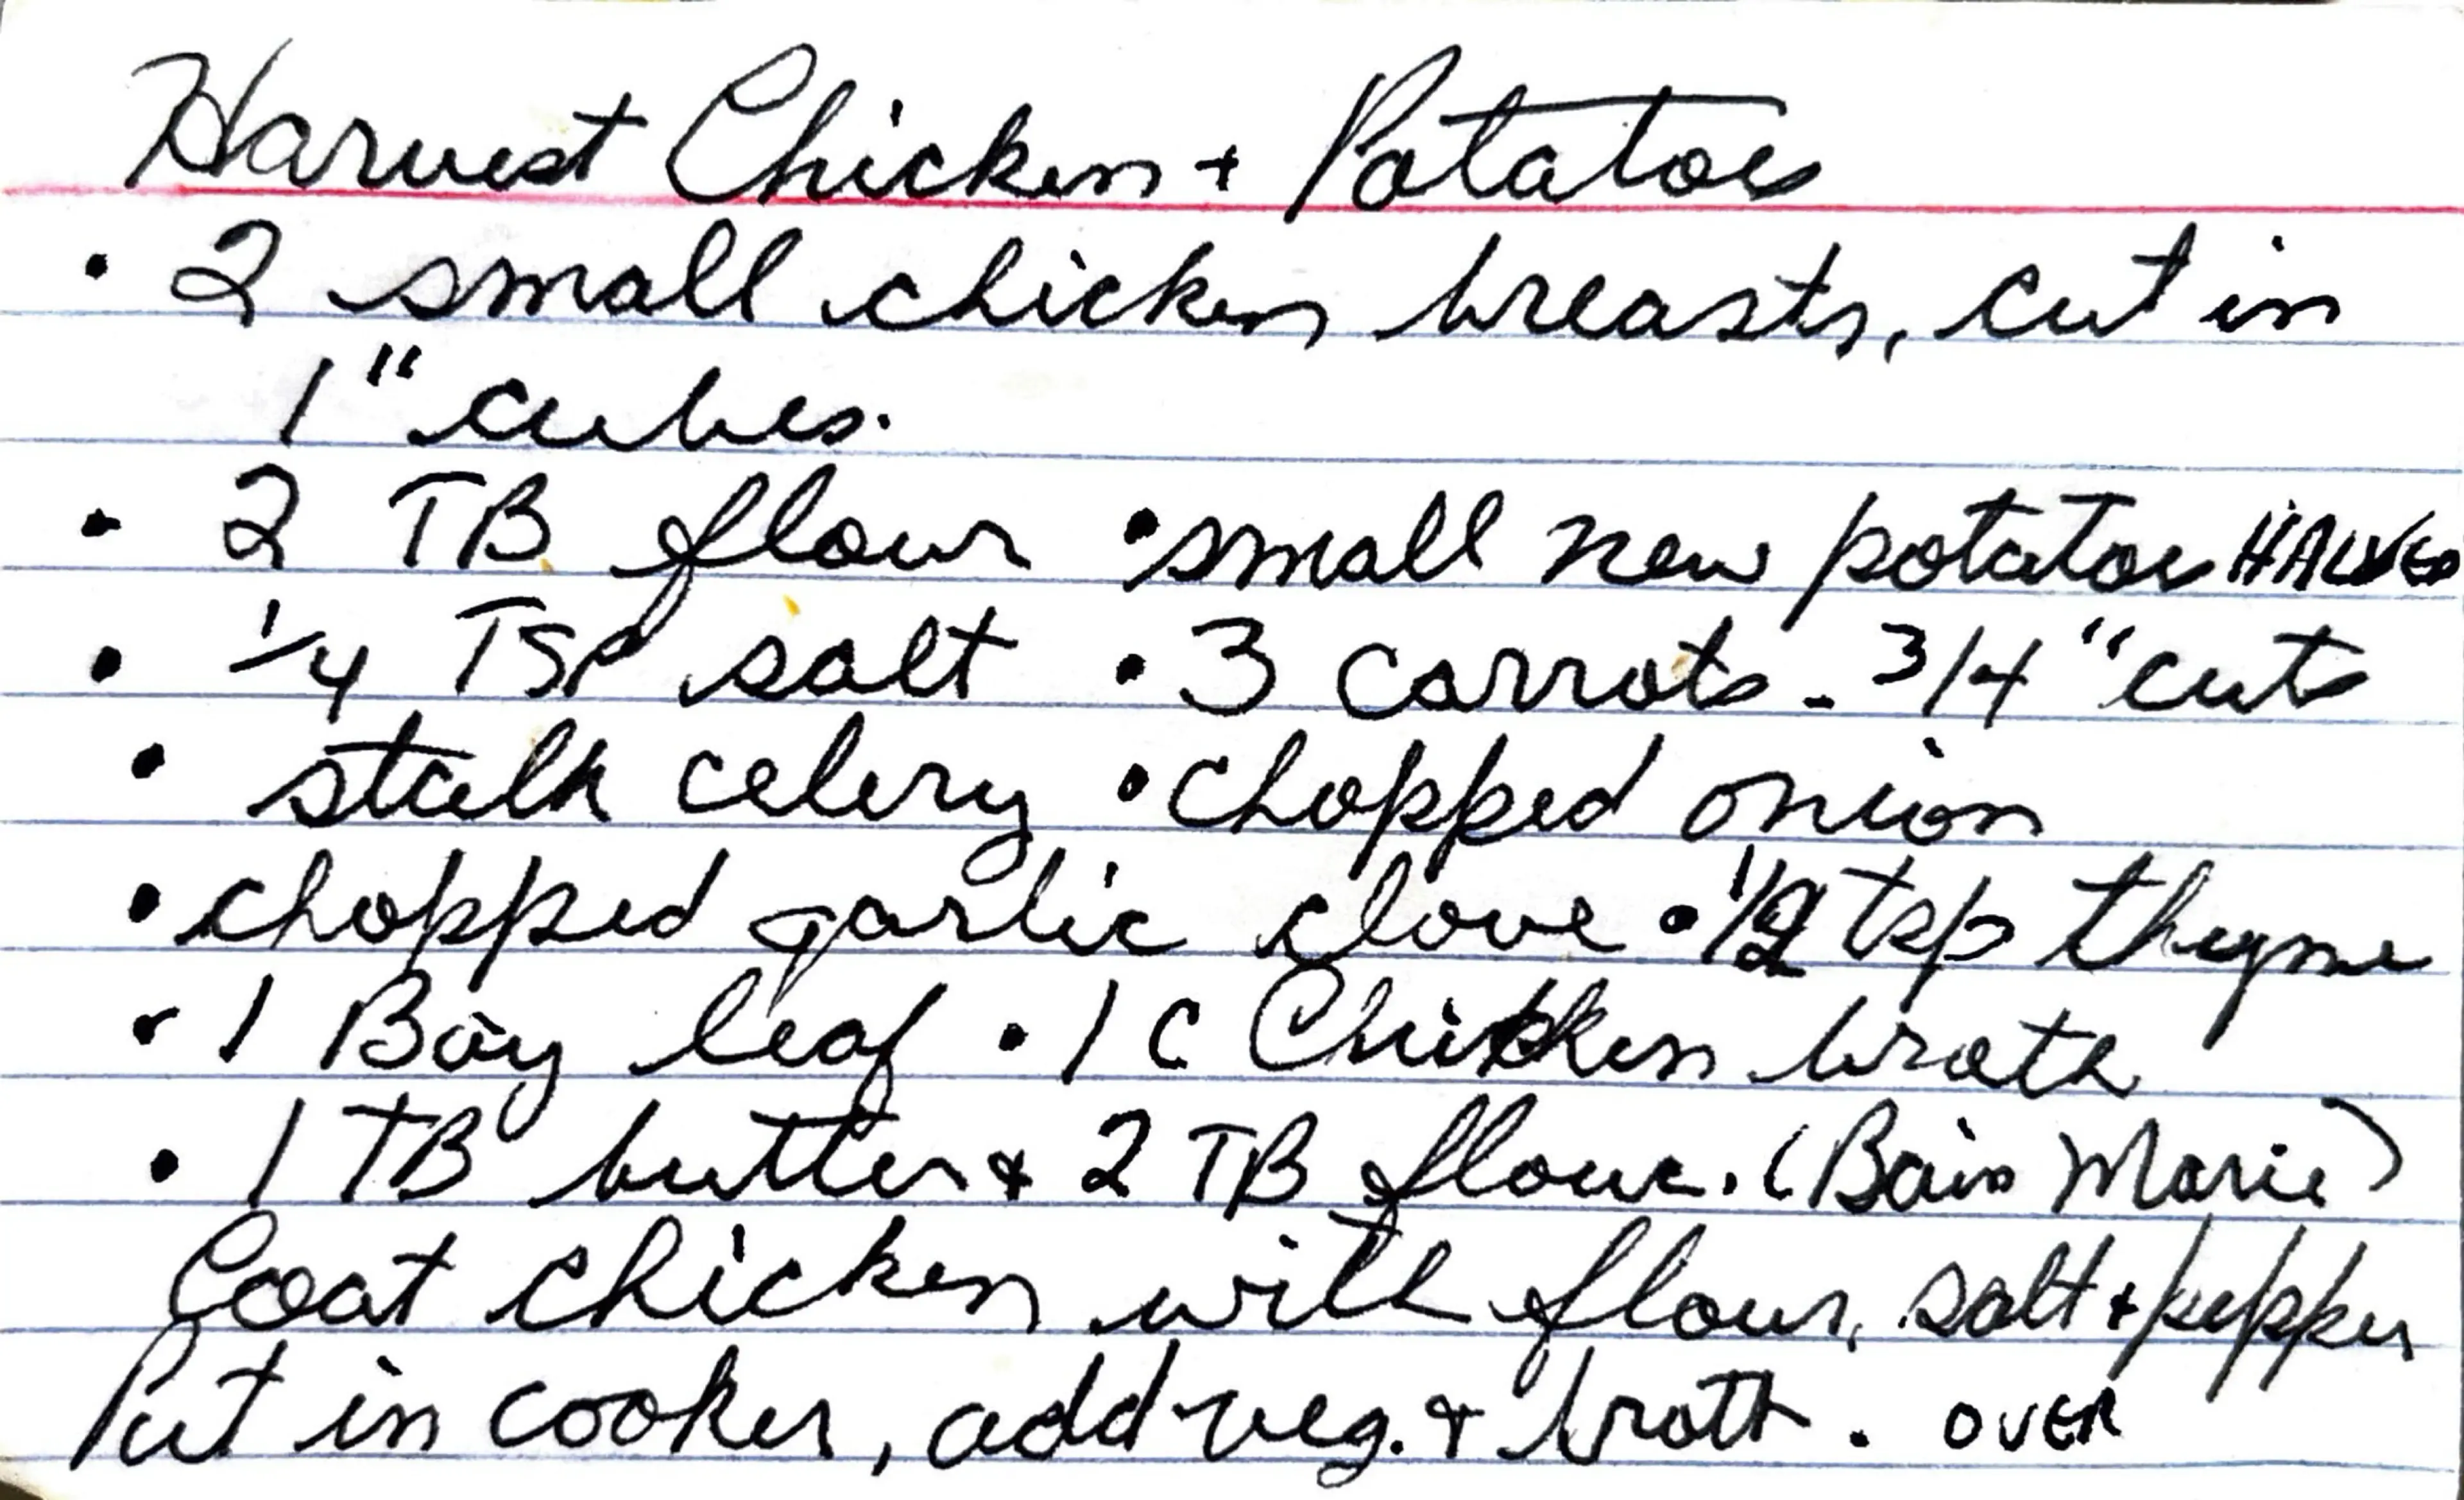 Harvest Chicken + Potatoes
• 2 small chicken breasts, cut in
1" cubes.
• 2 TB flour • small new potatoes HALVED
• 1/4 TSP salt • 3 carrots - 3/4" cuts
• stalk celery • chopped onion
• chopped garlic clove • 1/2 tsp thyme
• 1 Bay leaf • 1 C Chicken broth
• 1 TB butter + 2 TB flour. (Bain Marie)
Coat chicken with flour, salt + pepper
Put in cooker, add veg. + broth. OVER